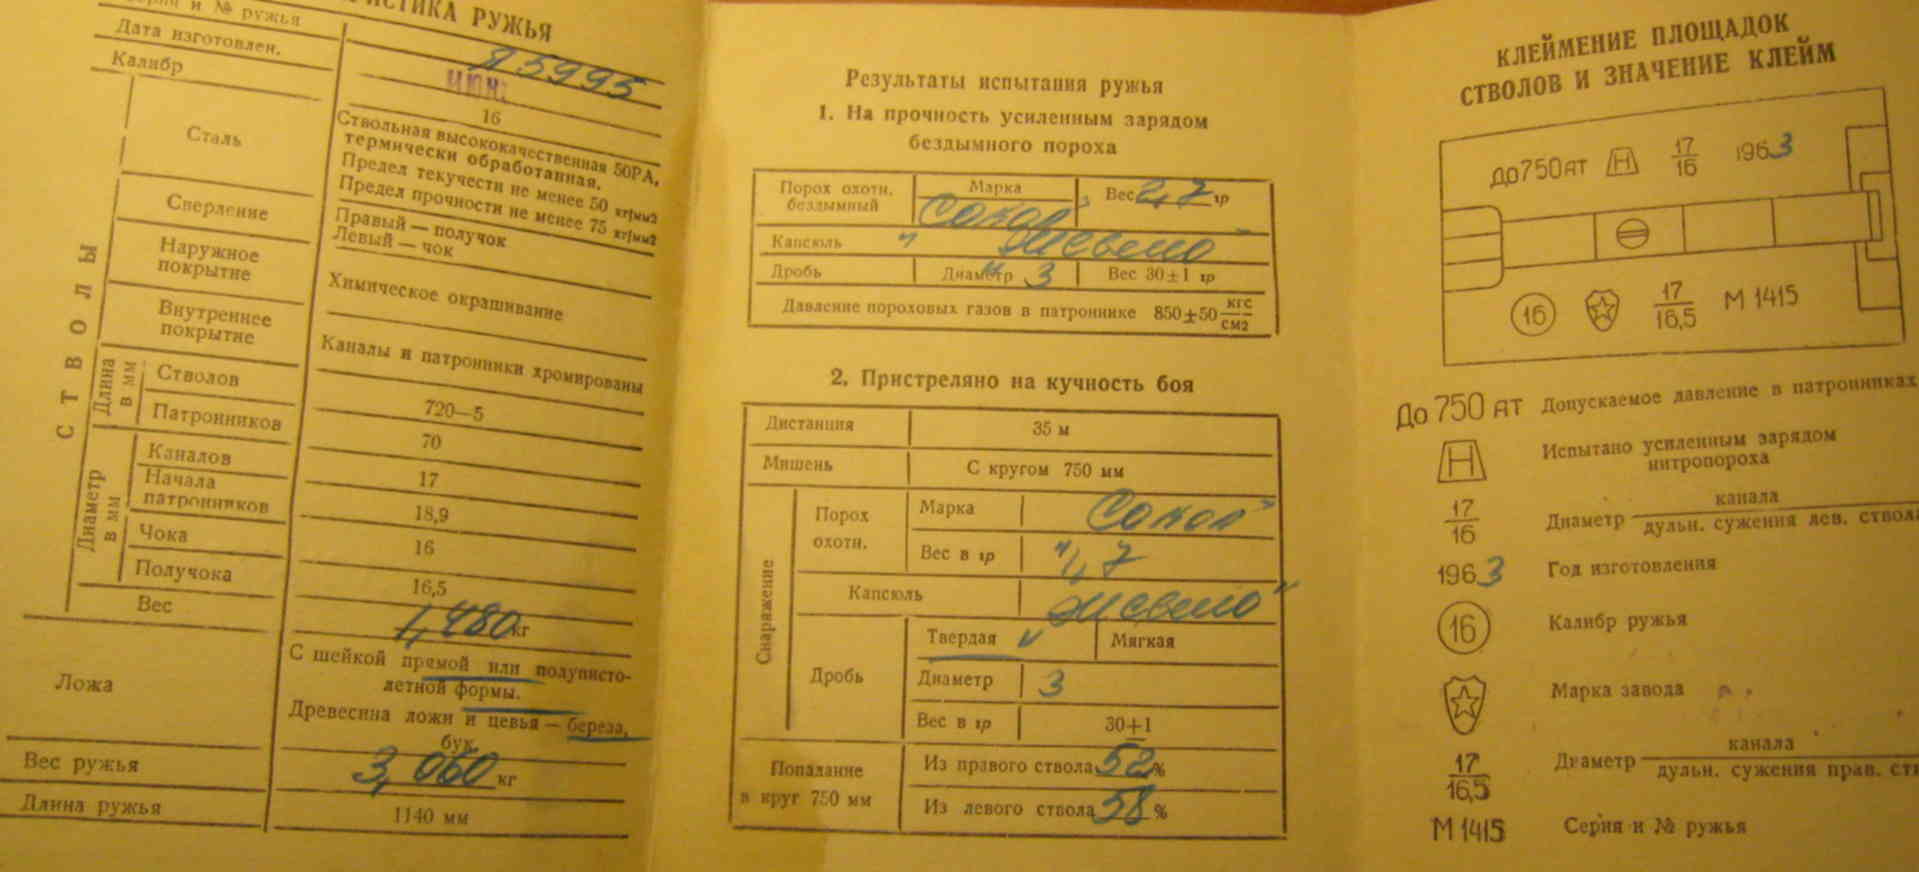 РИСТИКА РУЖЬЯ
и № ружья
Я 5995
Дата изготовлен.
ИЮНЬ
Калибр
16
СТВОЛЫ
Сталь
Ствольная высококачественная 50РА,
термически обработанная.
Предел текучести не менее 50 кг/мм2
Предел прочности не менее 75 кг/мм2
Сверление
Правый — получок
Левый — чок
Наружное
покрытие
Химическое окрашивание
Внутреннее
покрытие
Каналы и патронники хромированы
Длина
в мм
Стволов
720—5
Патронников
70
Диаметр
в мм
Каналов
17
Начала
патронников
18,9
Чока
16
Получока
16,5
Вес
1,480 кг
Ложа
С шейкой прямой или полуписто-
летной формы.
Древесина ложи и цевья — береза,
бук
Вес ружья
3,060 кг
Длина ружья
1140 мм
Результаты испытания ружья
1. На прочность усиленным зарядом
бездымного пороха
Порох охотн.
бездымный
Марка
„Сокол”
Вес 2,7 гр
Капсюль
„Жевело”
Дробь
Диаметр 3
Вес 30±1 гр
Давление пороховых газов в патроннике 850±50 кгс
см2
2. Пристреляно на кучность боя
Дистанция
35 м
Мишень
С кругом 750 мм
Снаряжение
Порох
охотн.
Марка
„Сокол”
Вес в гр
1,7
Капсюль
„Жевело”
Дробь
Твердая
Мягкая
Диаметр
3
Вес в гр
30±1
Попадание
в круг 750 мм
Из правого ствола 52 %
Из левого ствола 58 %
КЛЕЙМЕНИЕ ПЛОЩАДОК
СТВОЛОВ И ЗНАЧЕНИЕ КЛЕЙМ
до 750 АТ Н 17/16 1963
16 17/16,5 М 1415
До 750 АТ Допускаемое давление в патронниках
Н Испытано усиленным зарядом
нитропороха
17/16 Диаметр канала
дульн. сужения лев. ствола
1963 Год изготовления
16 Калибр ружья
Марка завода
17/16,5 Диаметр канала
дульн. сужения прав. ств
М 1415 Серия и № ружья